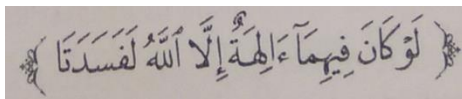 ﴿ لَوْ كَانَ فِيهِمَآ ءَالِهَةٌ إِلَّا ٱللَّهُ لَفَسَدَتَا ﴾